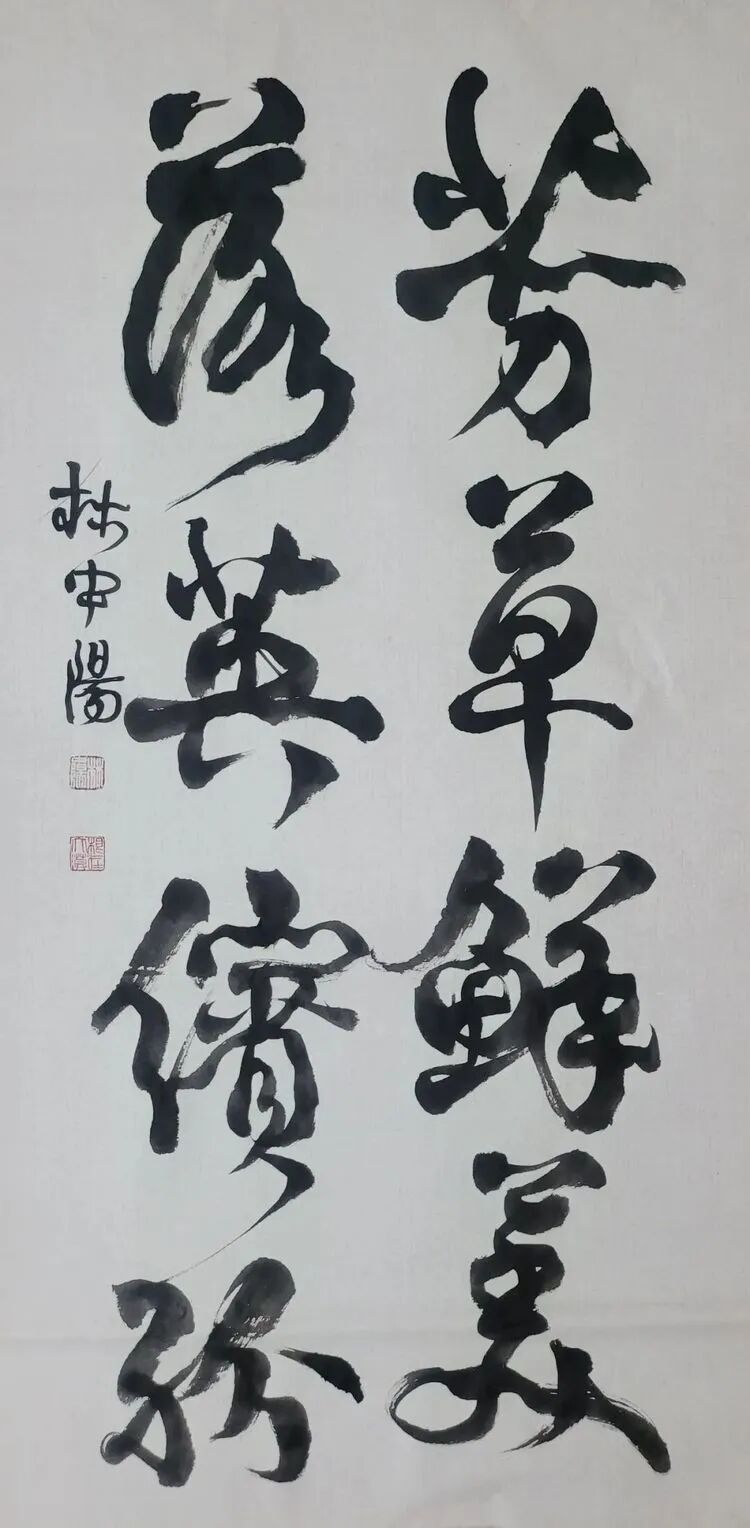 芳草鲜美
落英缤纷
林中阳